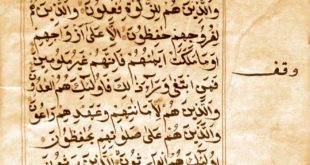 وَالَّذِينَ هُمْ لِلزَّكَوةِ فَعِلُونَ وَالَّذِينَ هُمْ
لِفُرُوجِهِمْ حَفِظُونَ اِلَّا عَلَى اَزْوَاجِهِمْ
اَوْ مَا مَلَكَتْ اَيْمَنُهُمْ فَاِنَّهُمْ غَيْرُ مَلُومِينَ
فَمَنِ ابْتَغَى وَرَاءَ ذَلِكَ فَاُولَئِكَ هُمُ الْعَدُونَ
وَالَّذِينَ هُمْ لِاَمَانَتِهِمْ وَعَهْدِهِمْ رَاعُونَ
وَالَّذِينَ هُمْ عَلَى صَلَوَتِهِمْ يُحَفِظُونَ
وقف